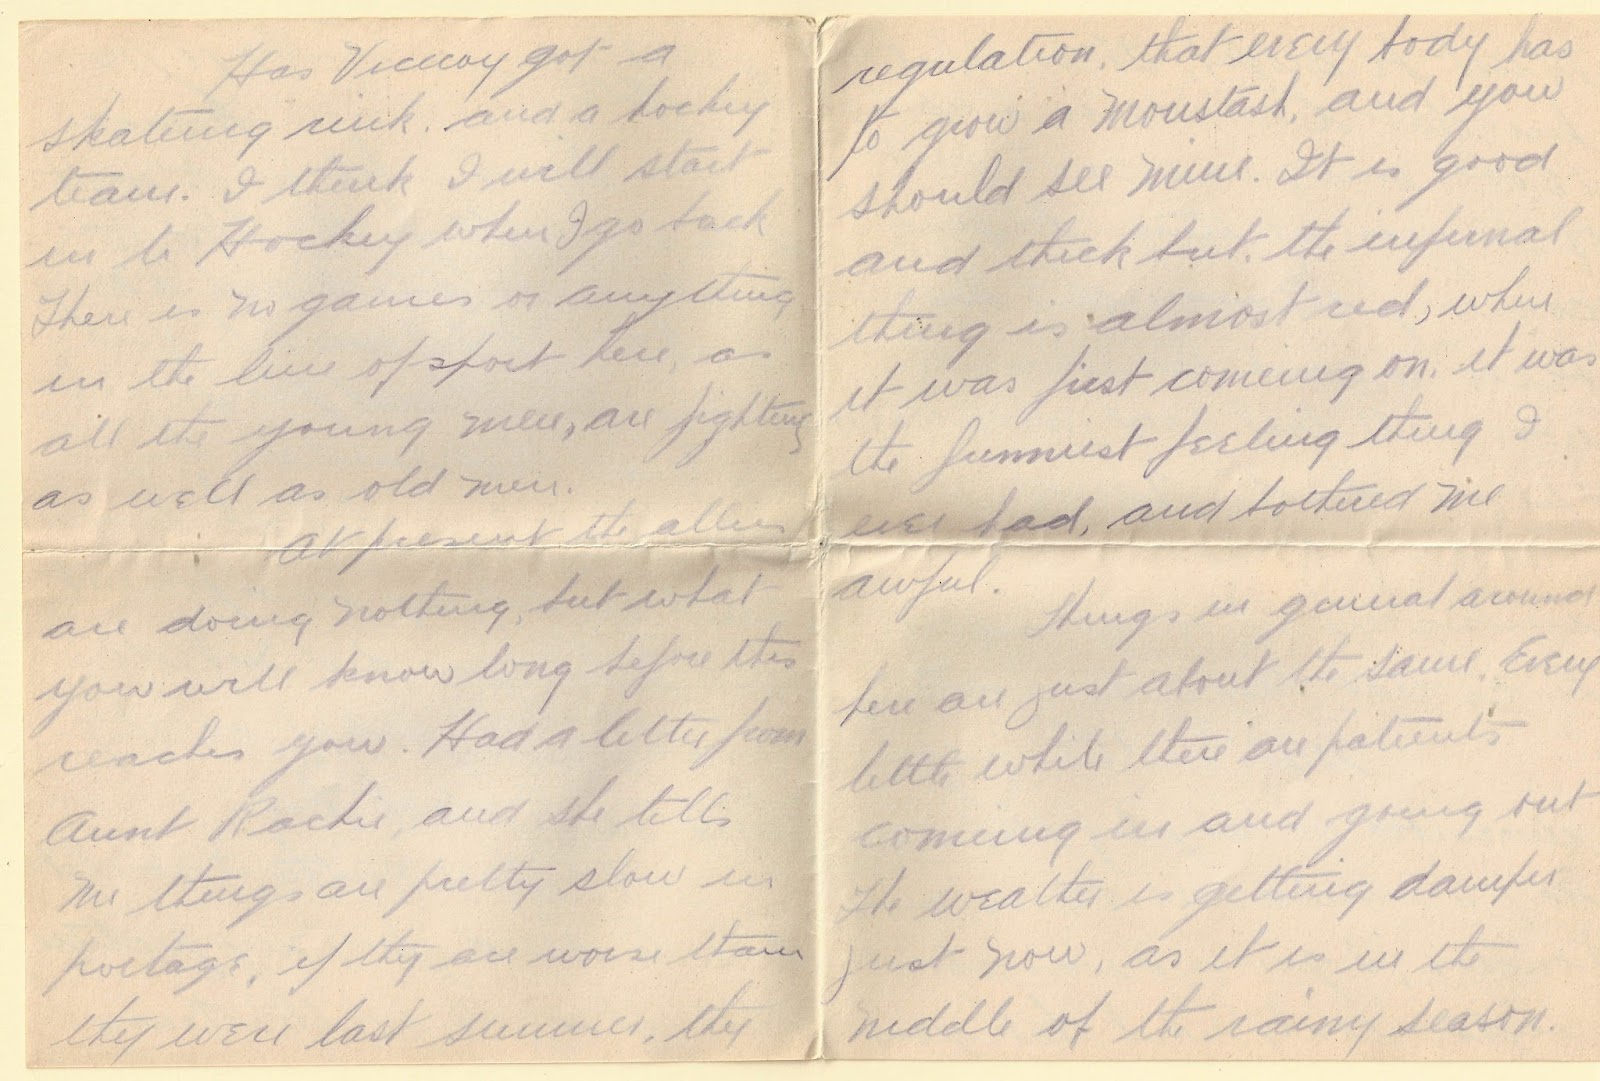 Has Viceroy got a
skating rink. and a hockey
team. I think I will start
in to Hockey when I go back
There is no games or anything
in the line of sport here, as
all the young men, are fighting
as well as old men.
At present the allies
are doing nothing, but what
you will know long before this
reaches you. Had a letter from
Aunt Rachie, and she tells
me things are pretty slow in
portage, if they are worse than
they were last summer, they
regulation. that every body has
to grow a moustash, and you
should see mine. It is good
and thick but. the infernal
thing is almost red, when
it was just comeing on. it was
the funniest feeling thing I
ever had, and bothered me
awful.
Things in general around
here are just about the same. Every
little while there are patients
comeing in and going out
The weather is getting damper
just now, as it is in the
middle of the rainy season.